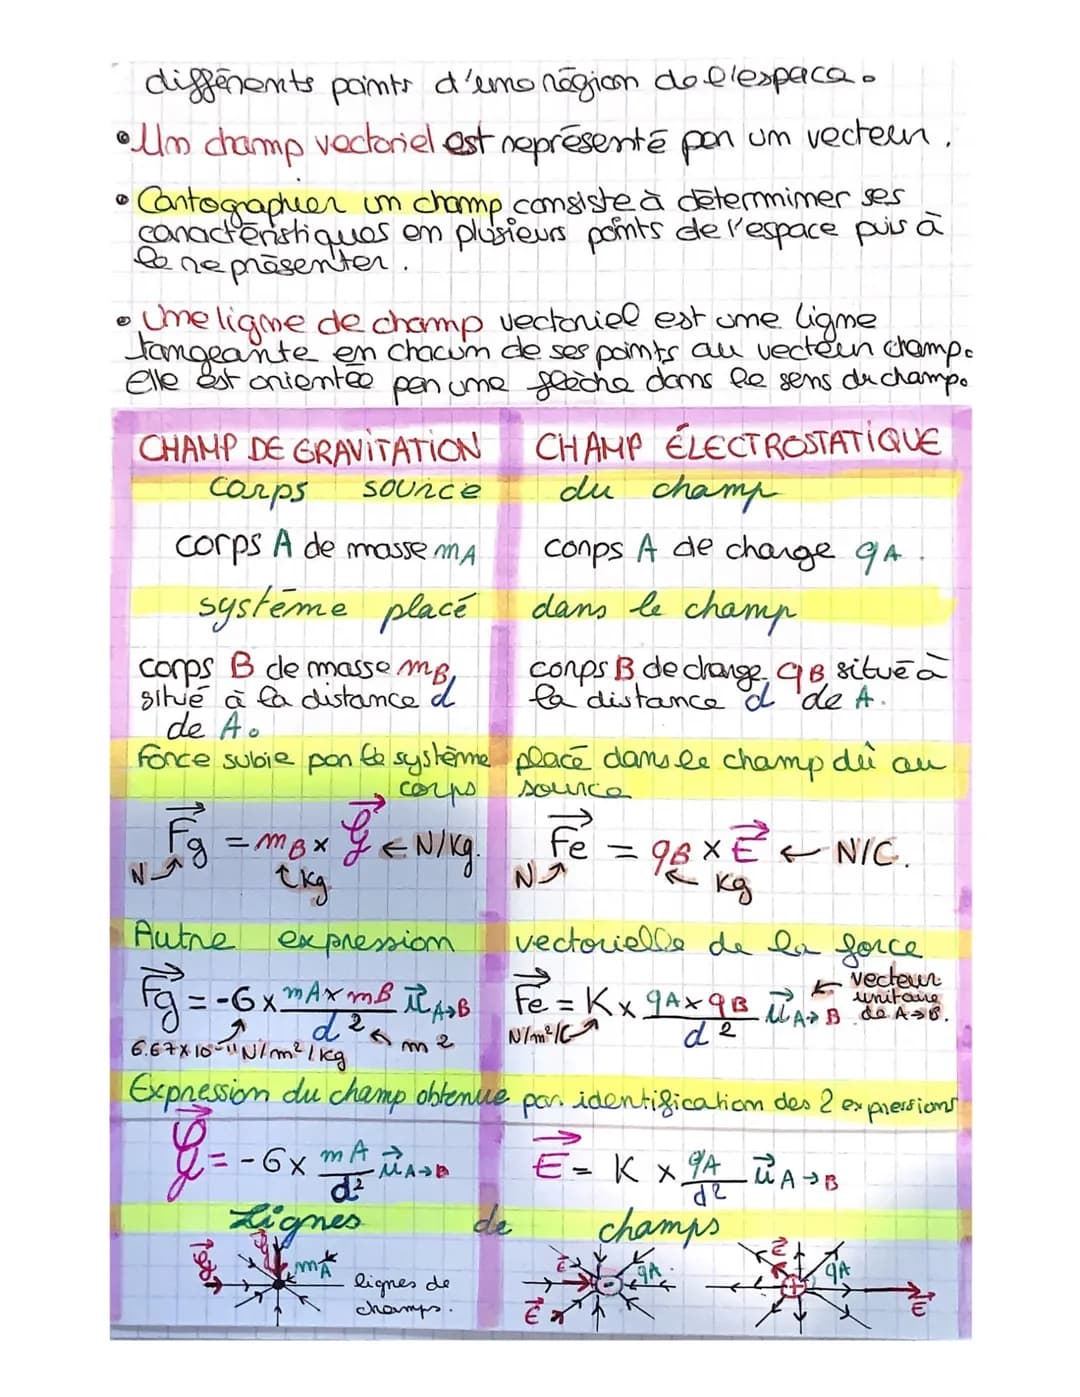 différents points d'une région de l'espace.
• Un champ vectoriel est représenté par un vecteur.
• Cartographier un champ consiste à déterminer ses
caractéristiques en plusieurs points de l'espace puis à
le représenter.
• Une ligne de champ vectoriel est une ligne
tangeante en chacun de ses points au vecteur champ.
Elle est orientée par une flèche dans le sens du champ.
CHAMP DE GRAVITATION CHAMP ÉLECTROSTATIQUE
corps source du champ
corps A de masse mA corps A de charge qA.
système placé dans le champ
corps B de masse mB, corps B de charge qB situé à
situé à la distance d la distance d de A.
de A.
Force subie par le système placé dans le champ dû au
corps source
Fg = mB × G ← N/kg. Fe = qB × E ← N/C.
N kg N kg
Autre expression vectorielle de la force
Fg = -G × mA × mB / d² u A→B Fe = K × qA × qB / d² u A→B ← vecteur unitaire de A→B.
6.67×10⁻¹¹ N/m²/kg m² N/m²/C
Expression du champ obtenue par identification des 2 expressions
G = -G × mA / d² u A→B E = K × qA / d² u A→B
Lignes de champs
G G mA E E - qA E + qA E
lignes de
champs.